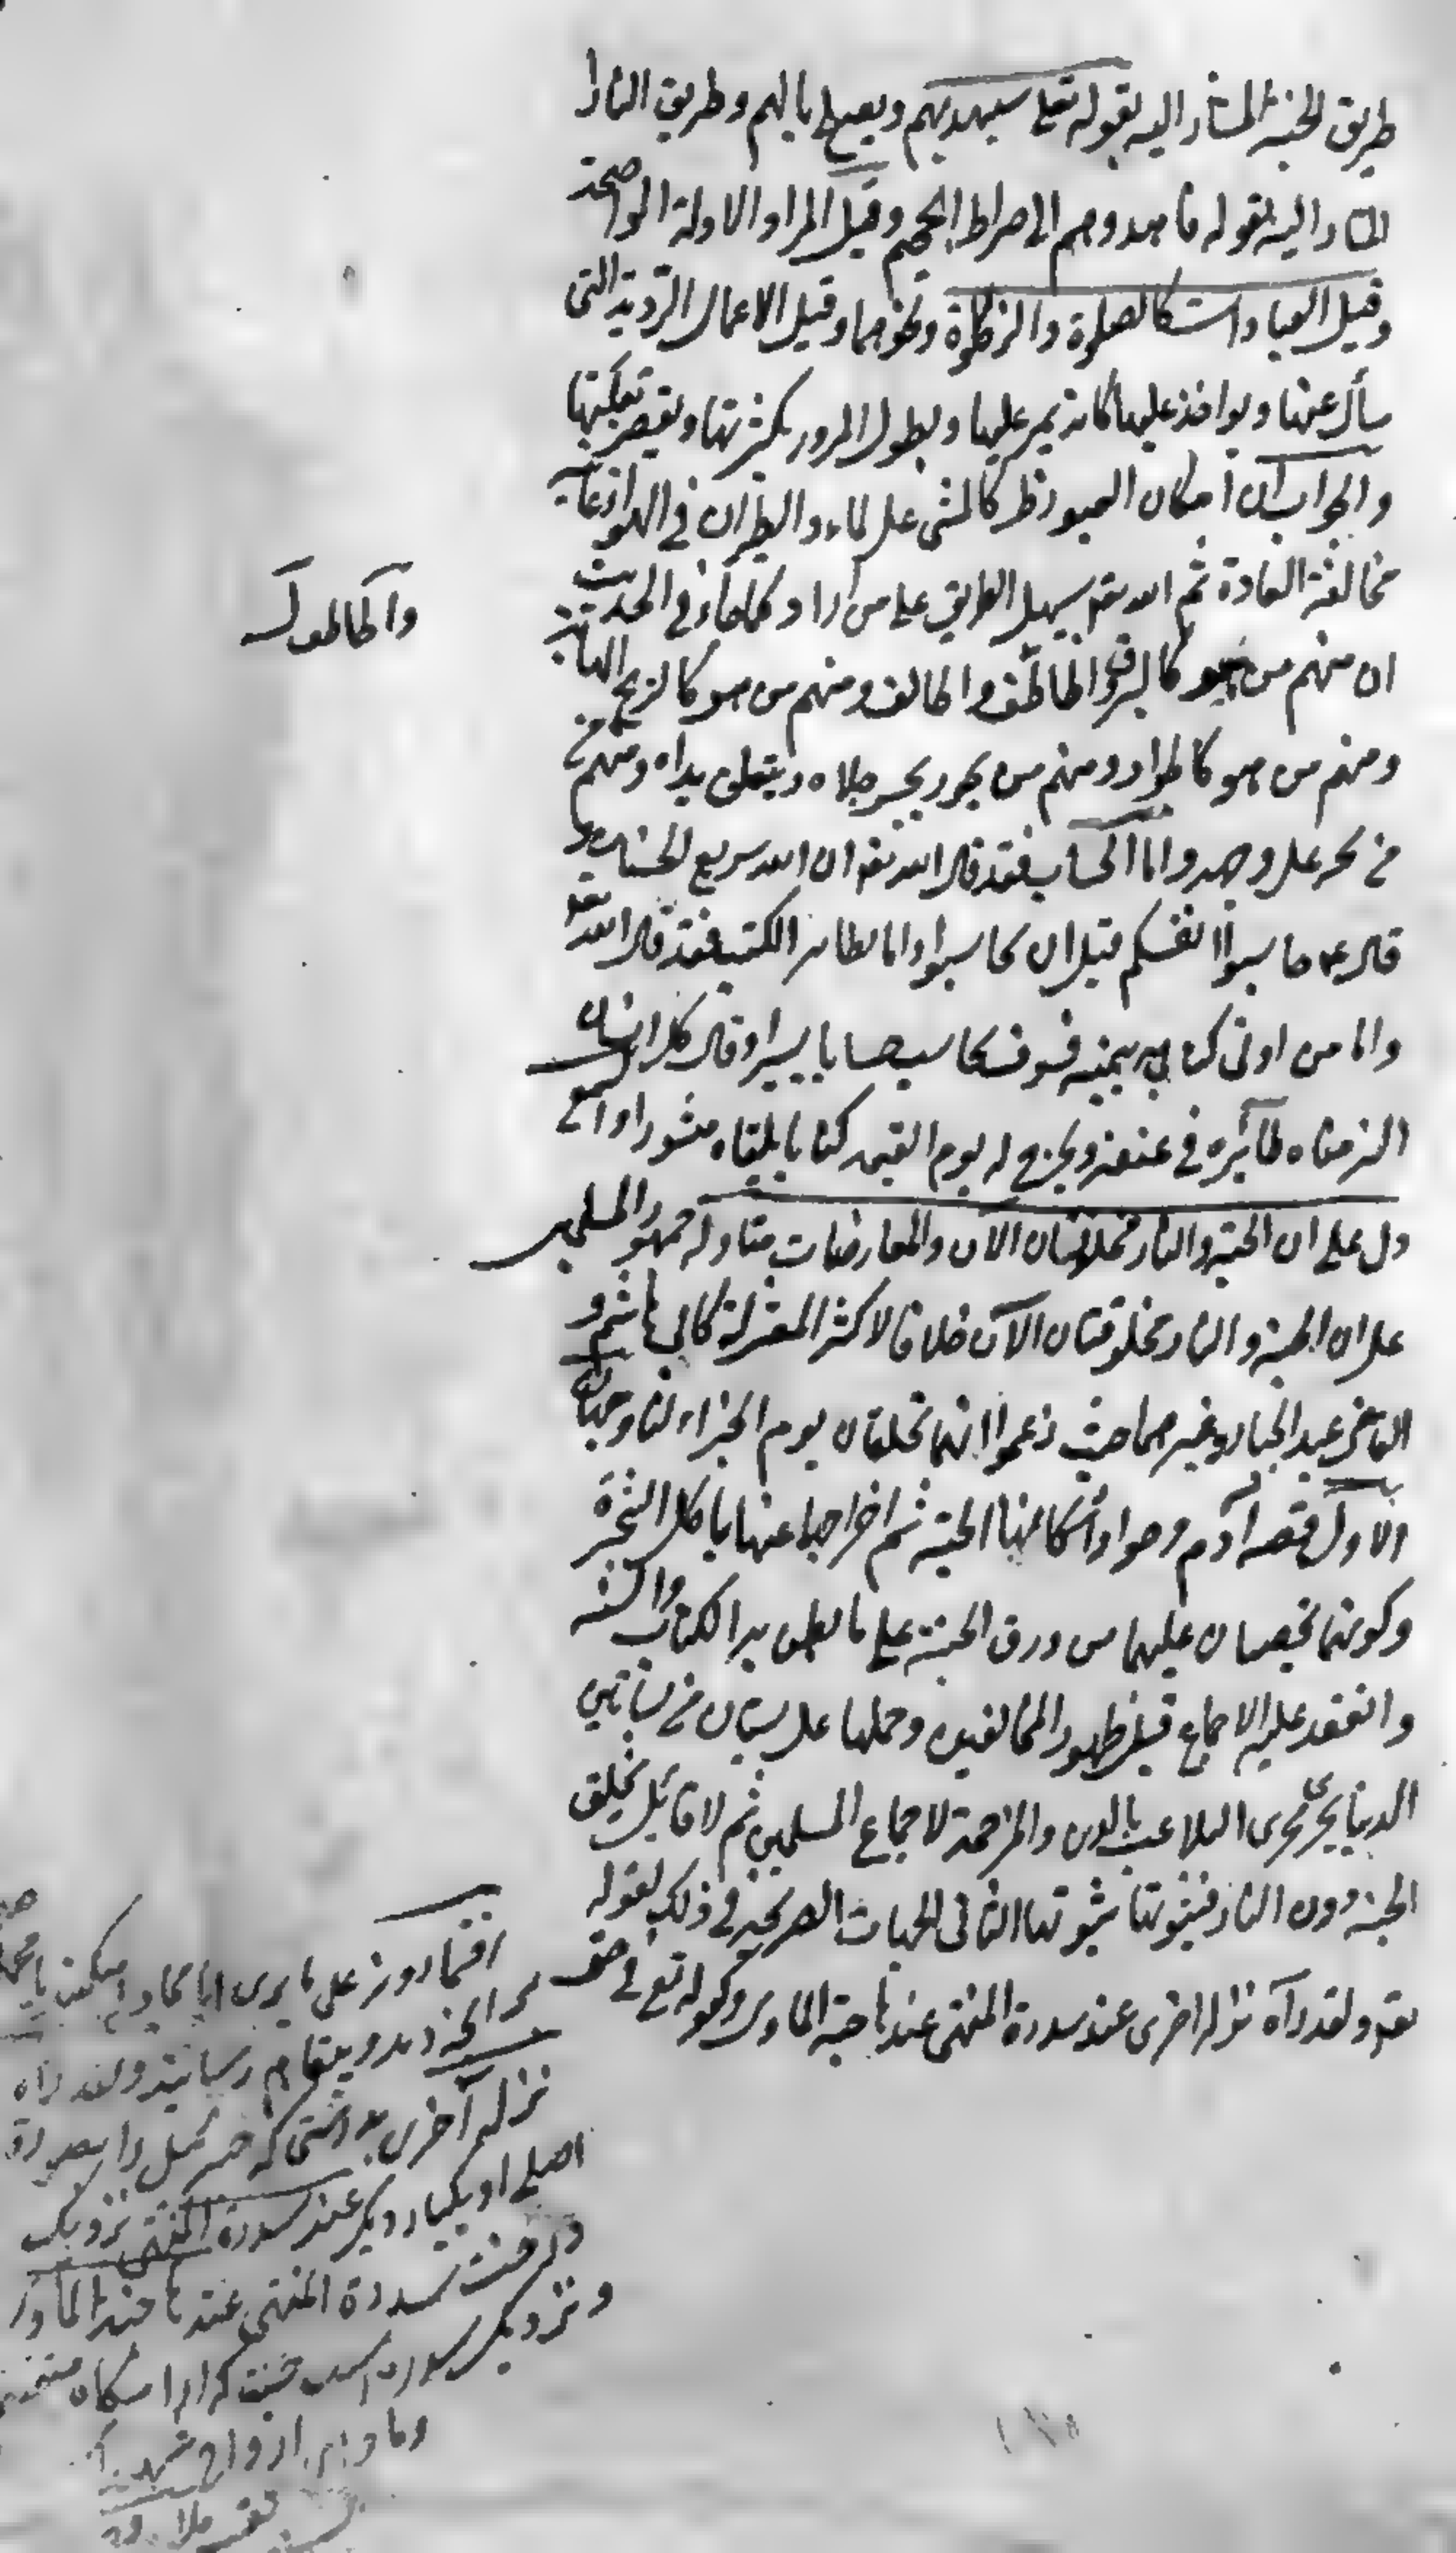 طريق الجنة المشار اليه بقوله تعالى سيهديهم ويصلح بالهم وطريق النار ا
المشار اليه بقوله فاهدوهم الى صراط الجحيم وقيل المراد الادلة الواضحة
وقيل العبادات كالصلوة والزكوة ونحوهما وقيل الاعمال الردية التى
يسأل عنها ويواخذ عليها كانه يمر عليها ويطول المرور بكثرتها ويقصر بقلتها
والجواب ان امكان العبور ظ كالمشى على الماء والطيران فى الهواء غايته
مخالفة العادة ثم الله تع يسهل الطريق على من اراد كما جاء فى الحديث
ان منهم من هو كالبرق الخاطف والخالف ومنهم من هو كالريح الهابة
ومنهم من هو كالجواد ومنهم من يجور رجلاه ويتعلق يداه ومنهم من
من يخر على وجهه واما الحساب فقد قال الله تع ان الله سريع الحساب و
قال عم حاسبوا انفسكم قبل ان تحاسبوا واما تطاير الكتب فقد قال الله تع
واما من اوتى كتابه بيمينه فسوف يحاسب حسابا يسيرا وقال كل انسان
الزمناه طائره فى عنقه ونخرج له يوم القيمة كتابا يلقاه منشورا والسمع
دل على ان الجنة والنار مخلوقتان الان والمعارضات متاولة جمهور المسلمين
على ان الجنة والنار مخلوقتان الان خلافا لاكثر المعتزلة كابى هاشم و
القاضى عبد الجبار وغيرهما حيث زعموا انهما تخلقان يوم الجزاء لنا وجهان
الاول قصه آدم وحواء واسكانهما الجنة ثم اخراجهما عنها باكل الشجرة
وكونهما يخصفان عليهما من ورق الجنة على ما نطق به الكتاب والسنة
وانعقد عليه الاجماع قبل ظهور المخالفين وحملها على بستان من بساتين
الدنيا يجرى مجرى التلاعب بالدين والمزاحمة لاجماع المسلمين ثم لا قائل بخلق
الجنة دون النار فثبوتها ثبوتها الثانى الايات الصريحة فى ذلك لقوله
تع ولقد رآه نزلة اخرى عند سدرة المنتهى عندها جنة الماوى وكقوله تع فى حق
افتمارونه على ما يرى ايا مجادله ميكنيد با محمد
ولقد راه
نزلة اخرى بدرستى كه جبرئيل را بصورة
اصلى او يكبار ديگر عند سدرة المنتهى نزديك
درخت سدرة المنتهى عندها جنة الماوى
ونزديك سدره است جنت كه آرامگاه متقيان
ارواح شهدا